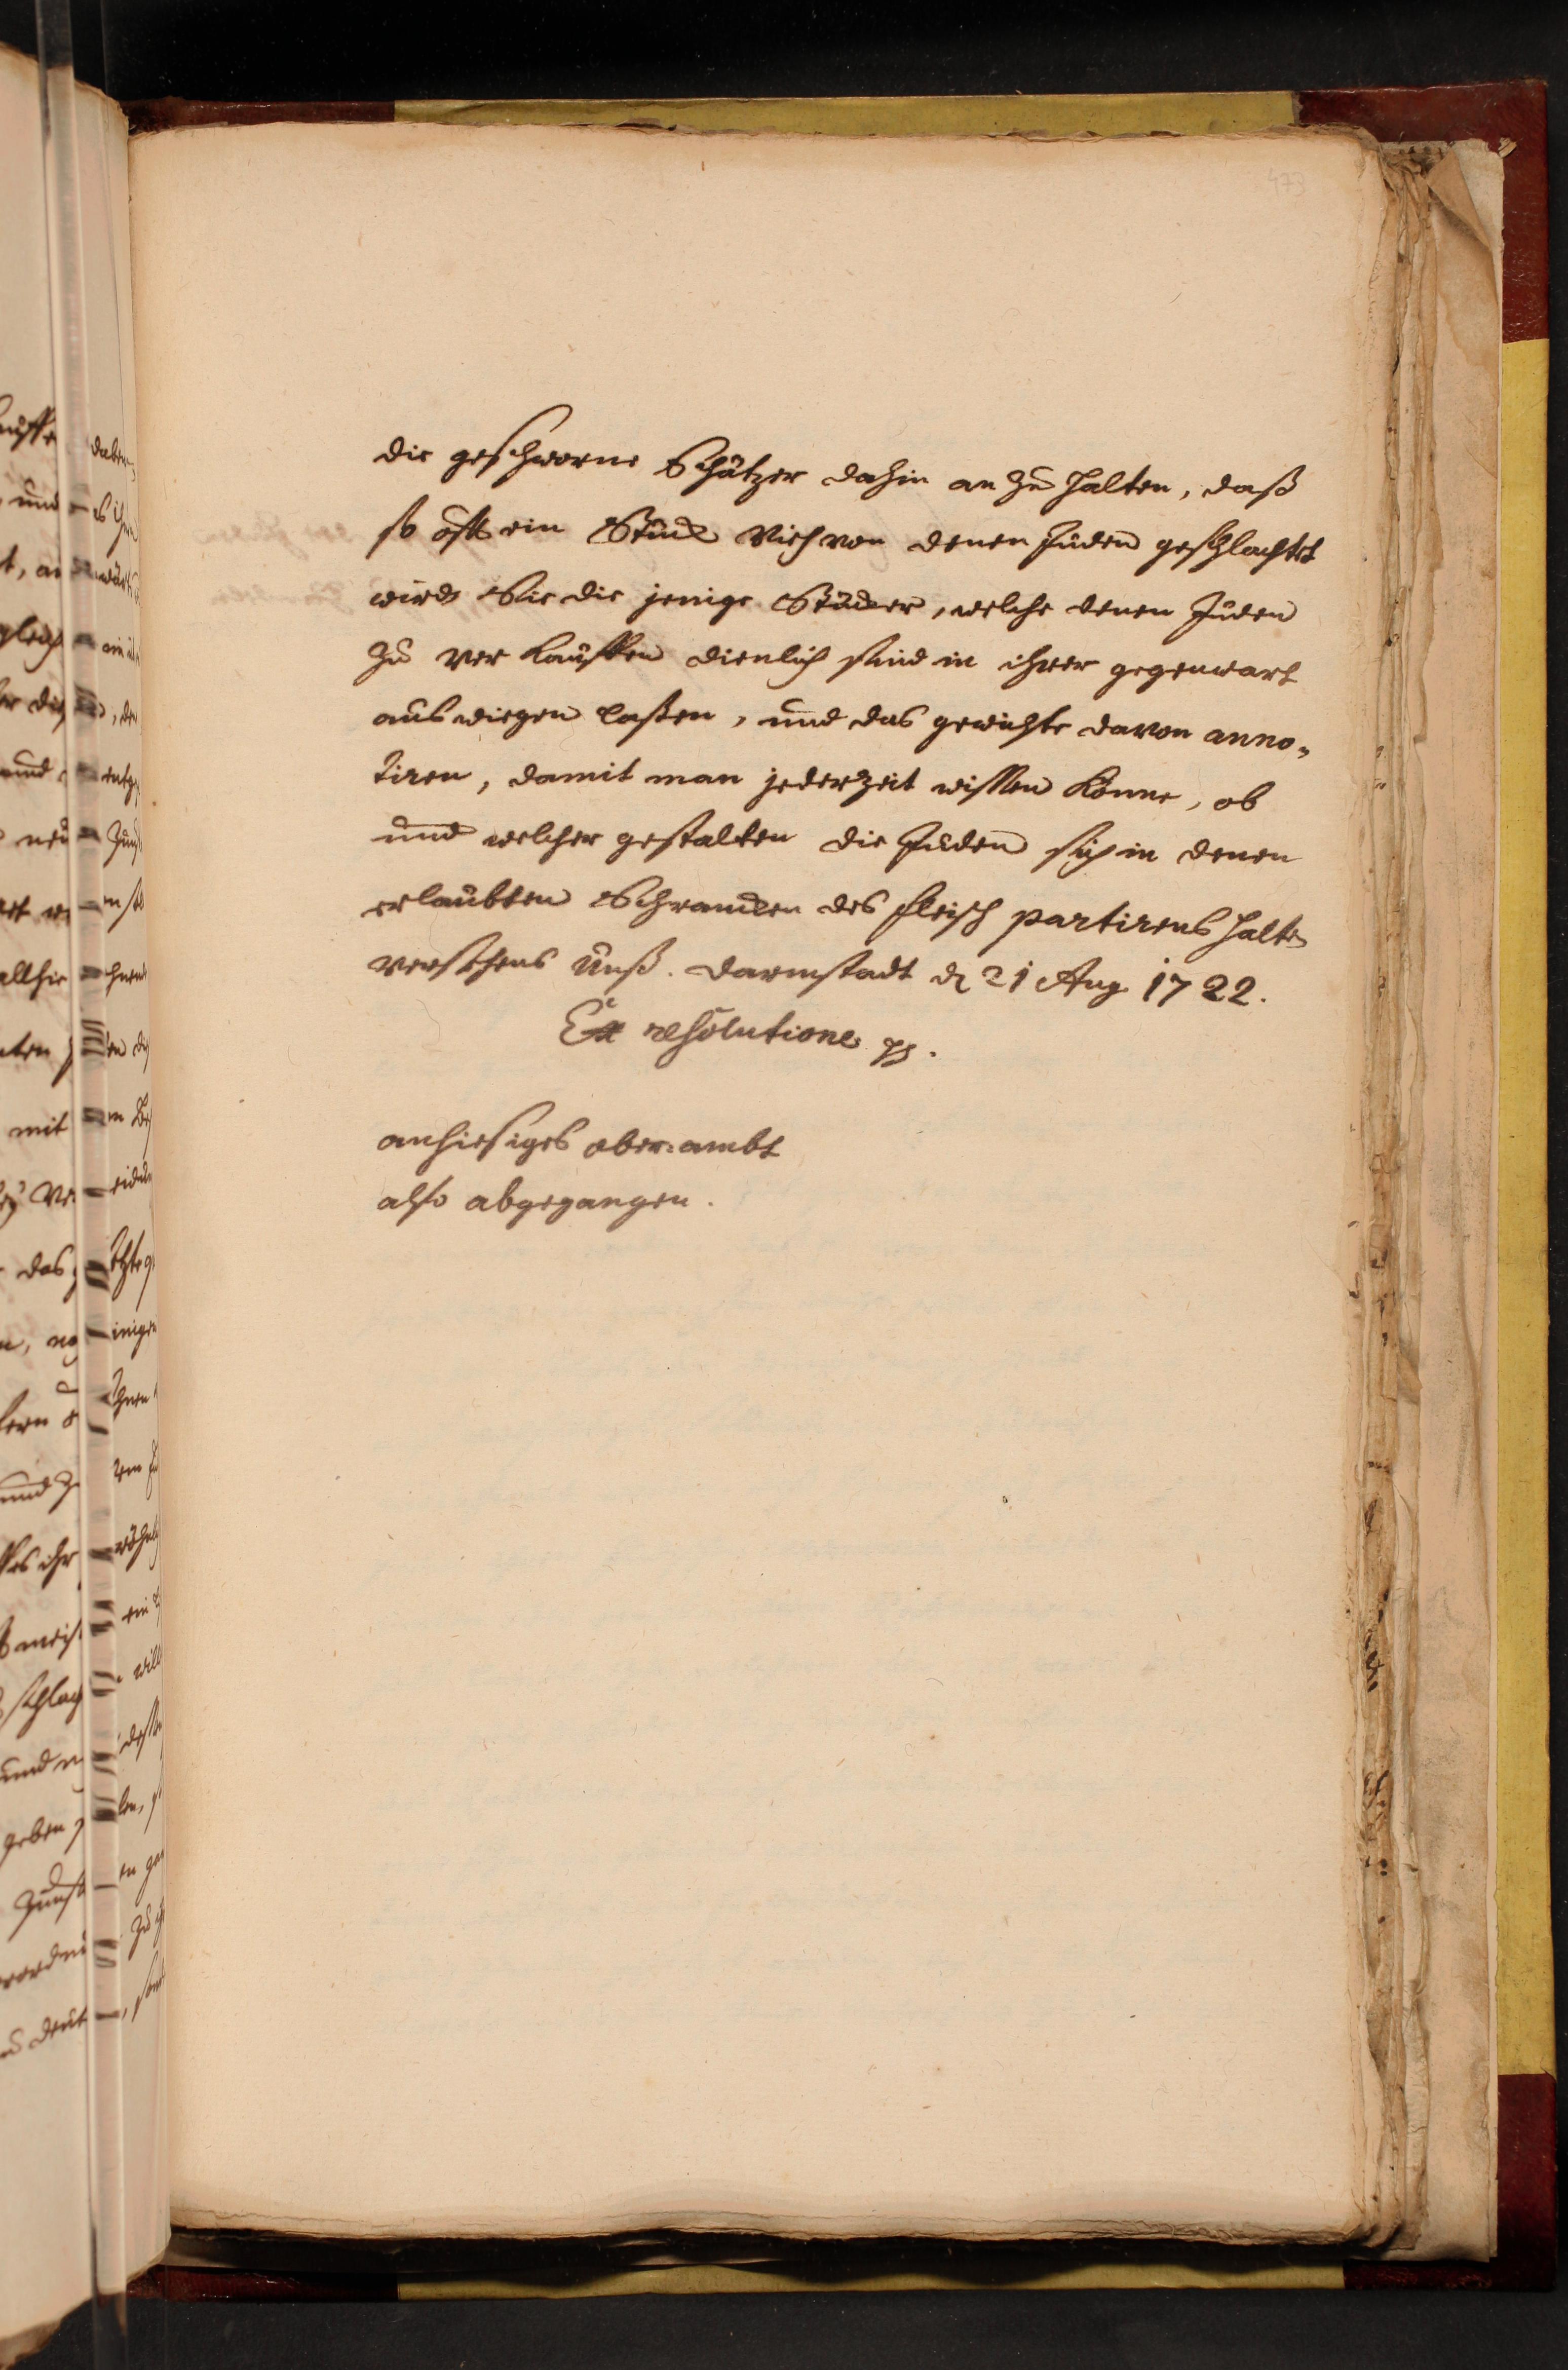 473
die geschworne Schätzer dahin an zu halten, daß
so offt ein Stück Vieh von denen Juden geschlachtet
wird Sie die jenige Stücker, welche denen Juden
zu ver kauffen dienlich sind in ihrer gegenwart
aus wiegen laßen, und das gewichte davon anno-
tiren, damit man jederzeit wissen könne, ob
und welcher gestalten die Juden sich in denen
erlaubten Schrancken des fleisch partirens halten
versehens Unß. Darmstadt d 21 Aug 1722.
Ex resolutione pp.
anhiesiges ober-ambt
also abgegangen.